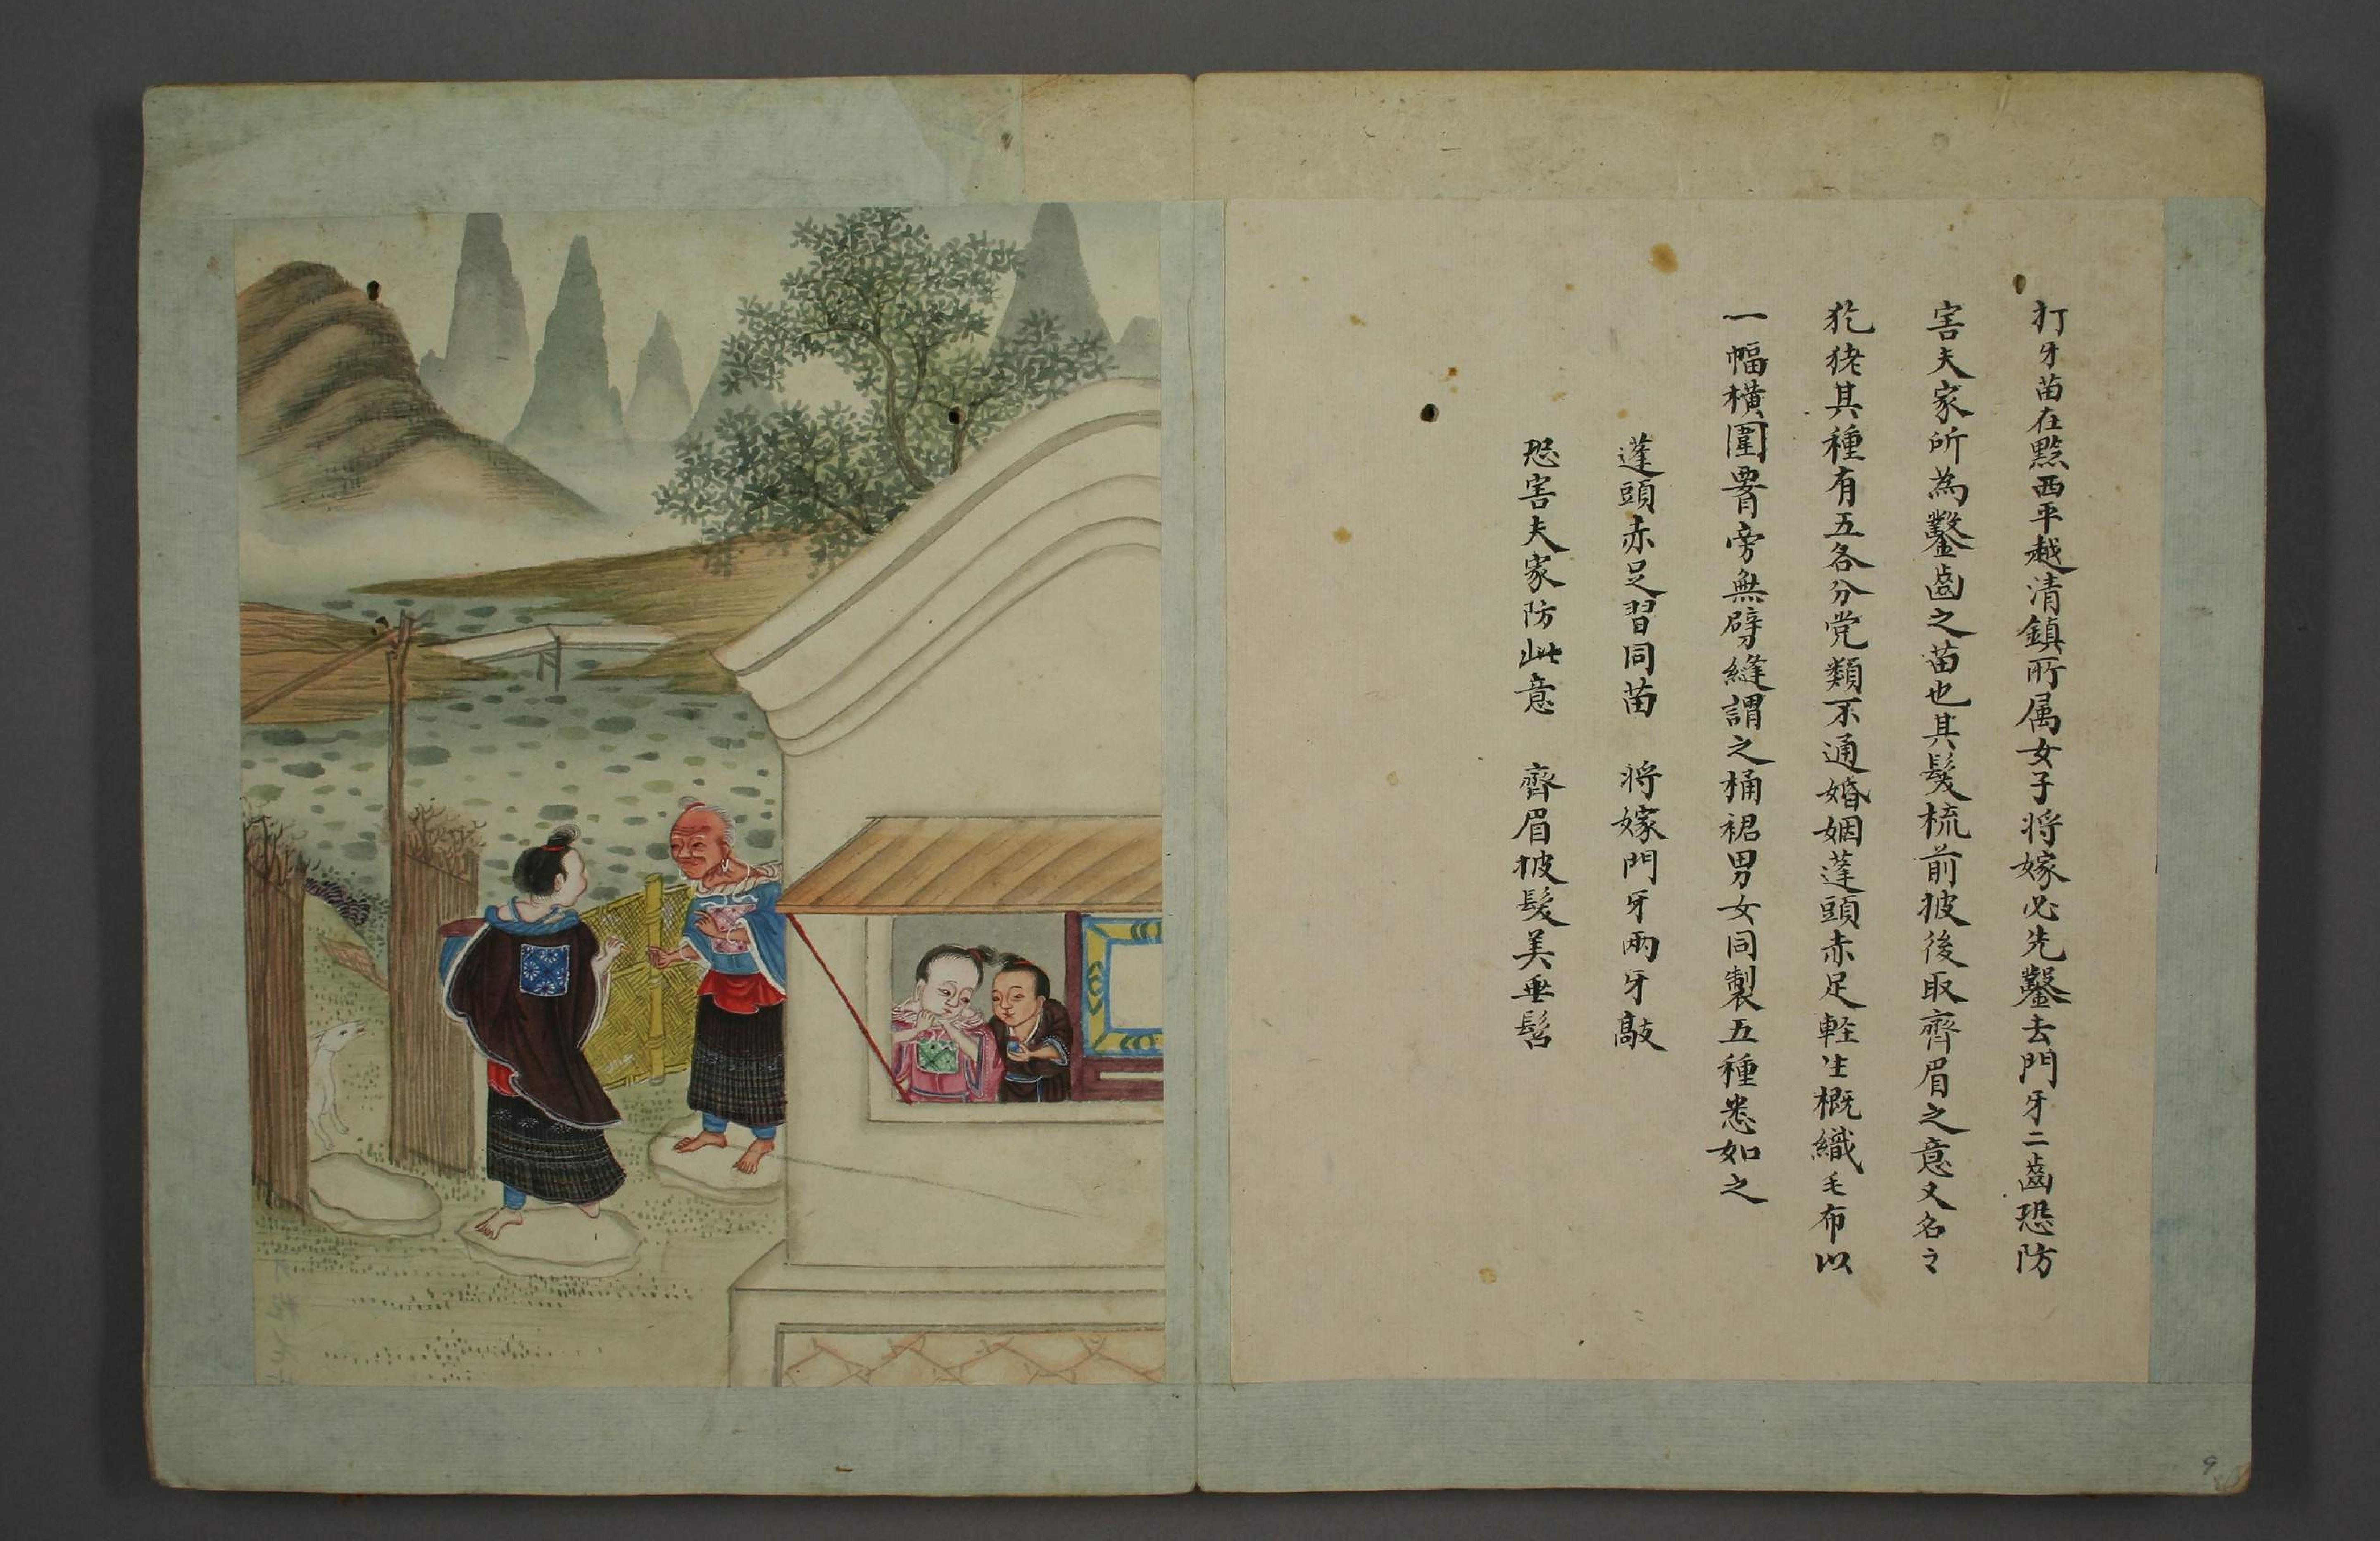 打牙苗在黔西平越清鎮所属女子将嫁必先鑿去門牙二齒恐防
害夫家所為鑿齒之苗也其髮梳前披後取齊眉之意又名之
犵狫其種有五各分党類不通婚姻蓬頭赤足軽生概織毛布以
一幅横圍署旁無劈縫謂之桶裙男女同製五種悉如之
蓬頭赤足習同苗　将嫁門牙兩牙敲
恐害夫家防此意　齊眉披髮美垂髫
9